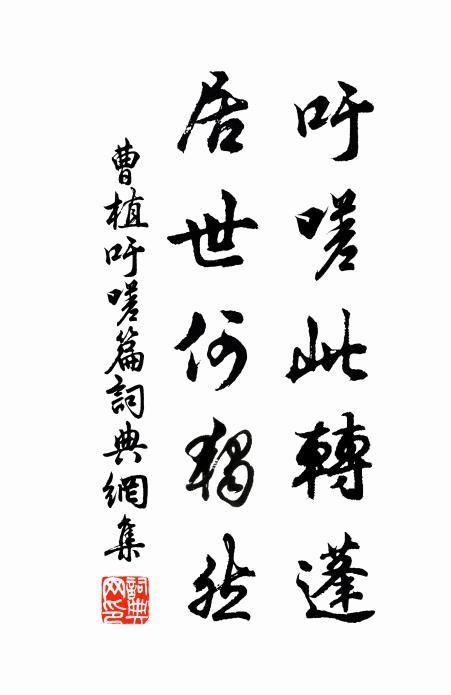 吁嗟此轉蓬
居世何獨然
曹植吁嗟篇詞典網集
詞典網印